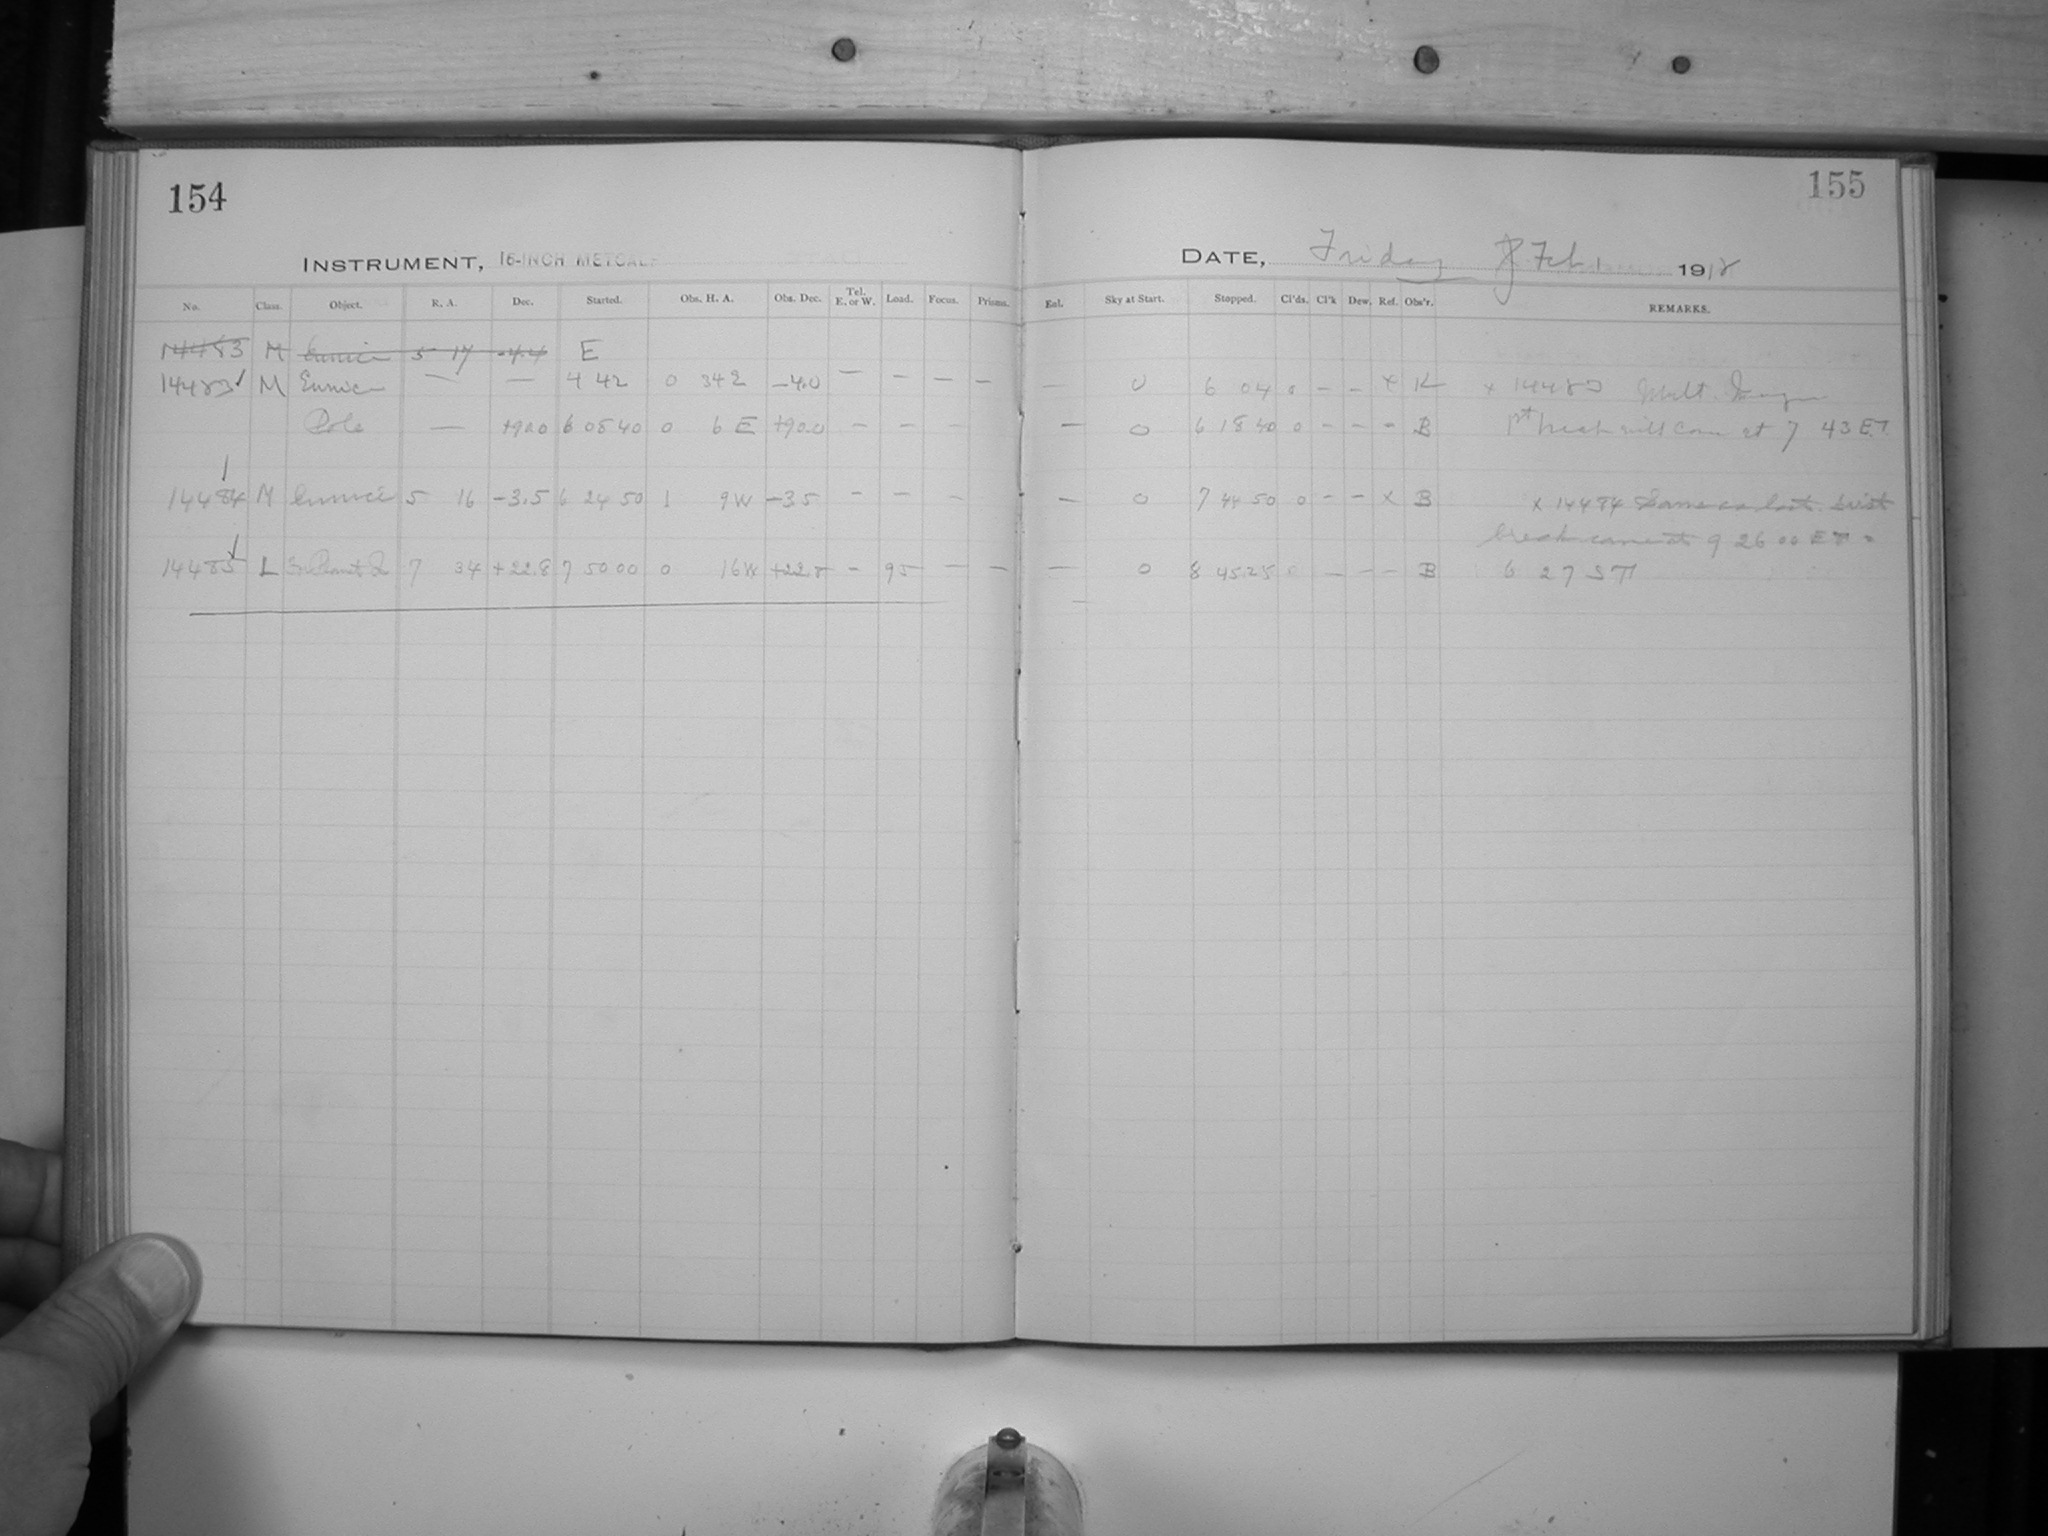 154
155
INSTRUMENT, 16-INCH METCALF
DATE, Friday 8 Feb. 1918
No. Class. Object. R. A. Dec. Started. Obs. H. A. Obs. Dec. Tel. E. or W. Load. Focus. Prisms. Enl. Sky at Start. Stopped. Cl'ds. Cl'k Dew. Ref. Obs'r. REMARKS.
14483 M Eunice 5 17 -4.4 E
14483 M Eunice — — 4 42 0 34 E -4.0 — — — — — 0 6 04 0 - - x K x 14483
Pole — +90.0 6 08 40 0 6 E +90.0 - - - — 0 6 18 40 0 - - - B 1st break will come at 7 43 E.T.
14484 M Eunice 5 16 -3.5 6 24 50 1 9 W -35 - - - — 0 7 44 50 0 - - x B x 14484 Same as last. First
break came at 9 26 00 E T =
14485 L 7 34 +22.8 7 50 00 0 16 W +22.8 - 95 — — — 0 8 45 25 0 — - - B 6 27 ST